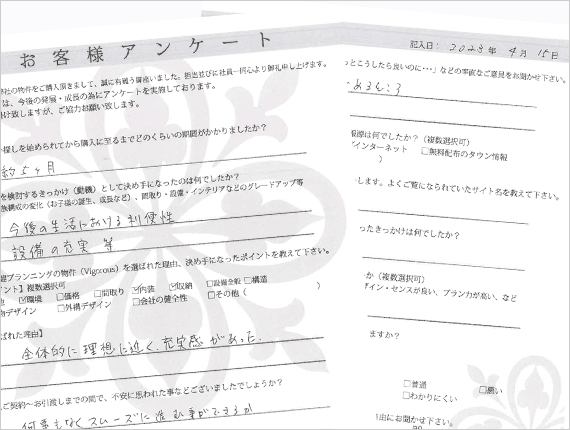 お客様アンケート
弊社の物件をご購入頂きまして、誠に有難う御座いました。担当並びに社員一同心より御礼申し上げます。
は、今後の発展・成長の為にアンケートを実施しております。
け致しますが、ご協力お願い致します。
探しを始められてから購入に至るまでどのくらいの期間がかかりましたか？
約5ヶ月
を検討するきっかけ（動機）として決め手になったのは何でしたか？
族構成の変化（お子様の誕生、成長など）、間取り・設備・インテリアなどのグレードアップ等
今後の生活における利便性
設備の充実 等
プランニングの物件（Vigorous）を選ばれた理由、決め手になったポイントを教えて下さい。
イント】複数選択可
☑環境 □価格 □間取り ☑内装 ☑収納 □設備全般 □構造
デザイン □外構デザイン □会社の健全性 □その他（ ）
ばれた理由】
全体的に理想に近く、充実感があった。
ご契約～お引渡しまでの間で、不安に思われた事などございましたでしょうか？
何事もなくスムーズに進む事ができるか
記入日： 2023年 4月 15日
っとこうしたら良いのに・・」などの率直なご意見をお聞かせ下さい。
報源は何でしたか？（複数選択可）
インターネット □無料配布のタウン情報
）
します。よくご覧になられていたサイト名を教えて下さい。
ったきっかけは何でしたか？
か（複数選択可）
ザイン・センスが良い、プラン力が高い、など
ますか？
□普通 □悪い
□わかりにくい
由にお聞かせ下さい。